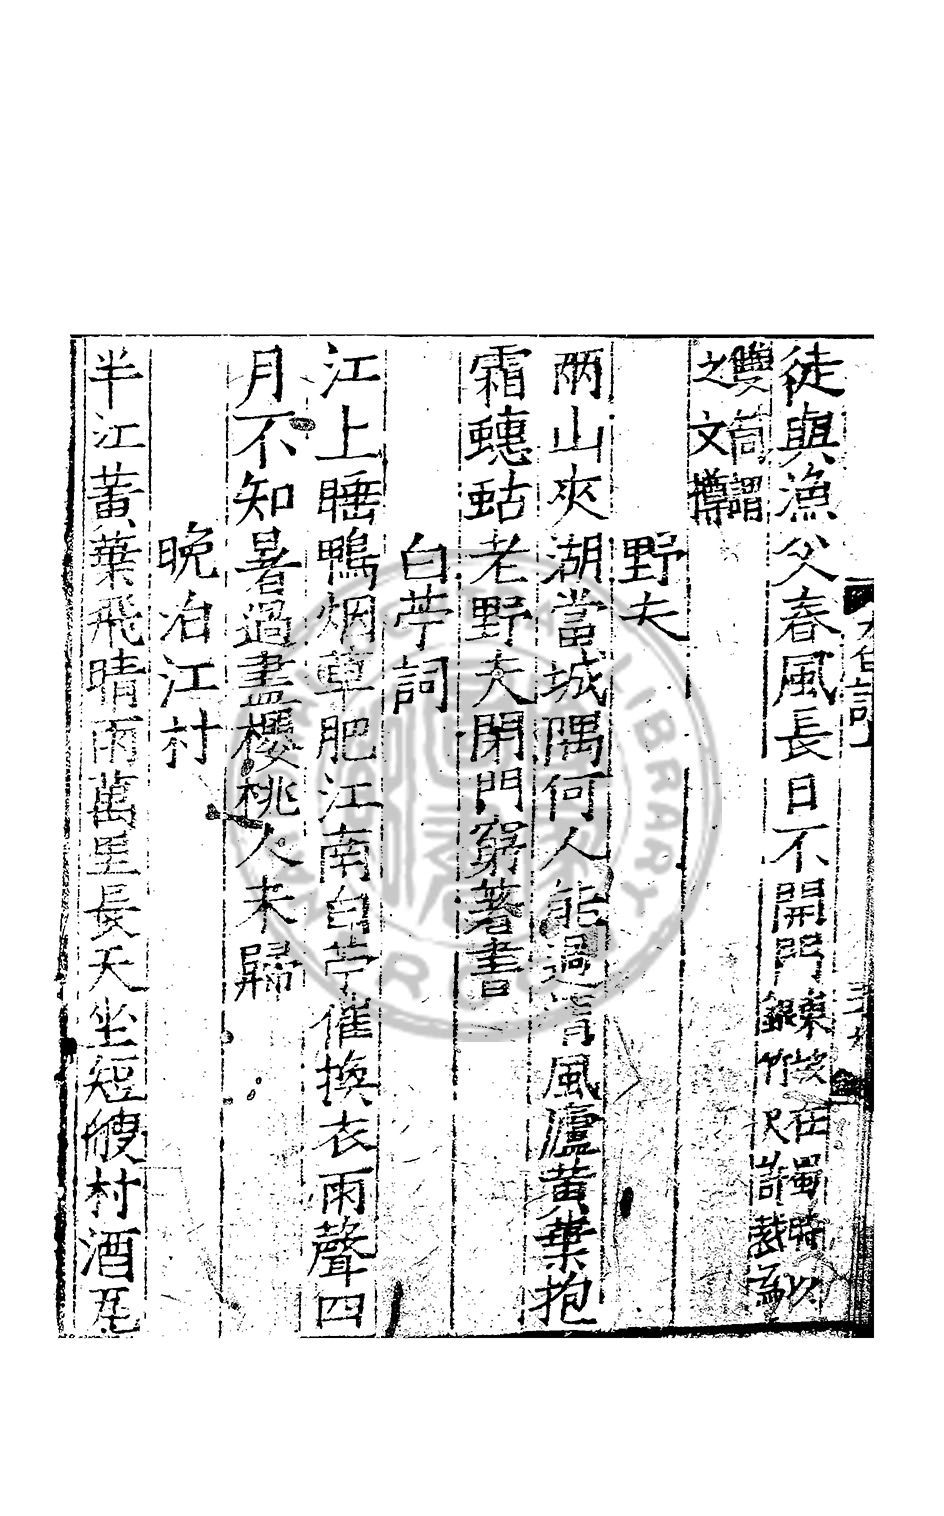 徒與漁父春風長日不開門東坡在蜀時以
銀竹尺許裁爲
雙筒謂
之文樽
野夫
兩山夾湖當城隅何人能過清風廬黄葉抱
霜蟪蛄老野夫閉門窮著書
白苧詞
江上睡鴨烟草肥江南白苧催換衣雨聲四
月不知暑過盡櫻桃人未歸
晚泊江村
半江黄葉飛晴雨萬里長天坐短艘村酒瓦